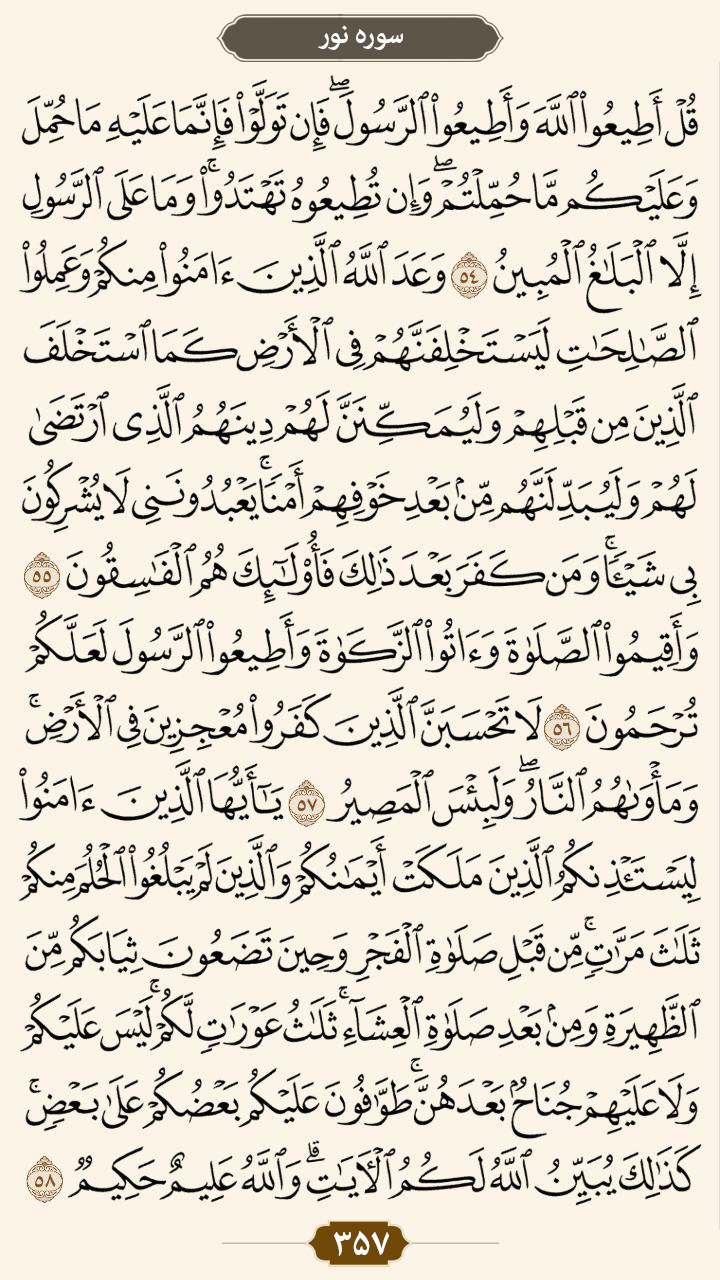 سوره نور
قُلْ أَطِيعُوا۟ ٱللَّهَ وَأَطِيعُوا۟ ٱلرَّسُولَ ۖ فَإِن تَوَلَّوْا۟ فَإِنَّمَا عَلَيْهِ مَا حُمِّلَ
وَعَلَيْكُم مَّا حُمِّلْتُمْ ۖ وَإِن تُطِيعُوهُ تَهْتَدُوا۟ ۚ وَمَا عَلَى ٱلرَّسُولِ
إِلَّا ٱلْبَلَٰغُ ٱلْمُبِينُ ٥٤ وَعَدَ ٱللَّهُ ٱلَّذِينَ ءَامَنُوا۟ مِنكُمْ وَعَمِلُوا۟
ٱلصَّٰلِحَٰتِ لَيَسْتَخْلِفَنَّهُمْ فِى ٱلْأَرْضِ كَمَا ٱسْتَخْلَفَ
ٱلَّذِينَ مِن قَبْلِهِمْ وَلَيُمَكِّنَنَّ لَهُمْ دِينَهُمُ ٱلَّذِى ٱرْتَضَىٰ
لَهُمْ وَلَيُبَدِّلَنَّهُم مِّنۢ بَعْدِ خَوْفِهِمْ أَمْنًا ۚ يَعْبُدُونَنِى لَا يُشْرِكُونَ
بِى شَيْـًٔا ۚ وَمَن كَفَرَ بَعْدَ ذَٰلِكَ فَأُو۟لَٰٓئِكَ هُمُ ٱلْفَٰسِقُونَ ٥٥
وَأَقِيمُوا۟ ٱلصَّلَوٰةَ وَءَاتُوا۟ ٱلزَّكَوٰةَ وَأَطِيعُوا۟ ٱلرَّسُولَ لَعَلَّكُمْ
تُرْحَمُونَ ٥٦ لَا تَحْسَبَنَّ ٱلَّذِينَ كَفَرُوا۟ مُعْجِزِينَ فِى ٱلْأَرْضِ ۚ
وَمَأْوَىٰهُمُ ٱلنَّارُ ۖ وَلَبِئْسَ ٱلْمَصِيرُ ٥٧ يَٰٓأَيُّهَا ٱلَّذِينَ ءَامَنُوا۟
لِيَسْتَـْٔذِنكُمُ ٱلَّذِينَ مَلَكَتْ أَيْمَٰنُكُمْ وَٱلَّذِينَ لَمْ يَبْلُغُوا۟ ٱلْحُلُمَ مِنكُمْ
ثَلَٰثَ مَرَّٰتٍ ۚ مِّن قَبْلِ صَلَوٰةِ ٱلْفَجْرِ وَحِينَ تَضَعُونَ ثِيَابَكُم مِّنَ
ٱلظَّهِيرَةِ وَمِنۢ بَعْدِ صَلَوٰةِ ٱلْعِشَآءِ ۚ ثَلَٰثُ عَوْرَٰتٍ لَّكُمْ ۚ لَيْسَ عَلَيْكُمْ
وَلَا عَلَيْهِمْ جُنَاحٌۢ بَعْدَهُنَّ ۚ طَوَّٰفُونَ عَلَيْكُم بَعْضُكُمْ عَلَىٰ بَعْضٍ ۚ
كَذَٰلِكَ يُبَيِّنُ ٱللَّهُ لَكُمُ ٱلْـَٔايَٰتِ ۗ وَٱللَّهُ عَلِيمٌ حَكِيمٌ ٥٨
۳۵۷